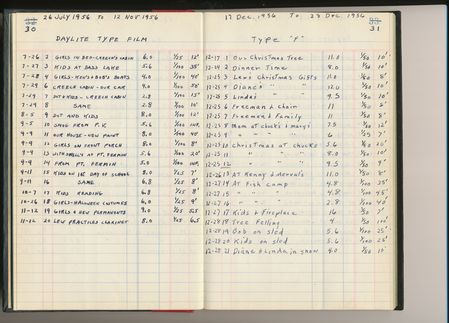 26 JULY 1956 TO 12 NOV 1956
30
DAYLITE TYPE FILM
7-26 2 GIRLS IN BED-CREECH'S CABIN 6.0 1/25 12'
7-27 3 KIDS AT BASS LAKE 5.6 1/100 35'
7-28 4 GIRLS-MEN'S & BOB'S BOATS 4.0 1/100 40'
7-29 6 CREECH CABIN - OUR CAR 4.0 1/100 50'
7-29 7 DOT & KIDS - CREECH CABIN 2.8 1/100 15'
7-29 8 SAME 2.8 1/100 10'
8-5 9 DOT AND KIDS 8.0 1/100 12'
9-5 10 SMOG FROM P.V. 5.6 1/100 INF.
9-9 11 OUR HOUSE - NEW PAINT 8.0 1/100 40'
9-9 12 GIRLS ON FRONT PORCH 8.0 1/100 8'
9-9 13 WITH MOLLY AT PT. FERMIN 5.6 1/100 20'
9-9 14 FROM PT. FERMIN 5.0 1/100 INF.
9-11 15 KIDS ON 1st DAY OF SCHOOL 8.0 1/25 7'
9-11 16 SAME 6.8 1/25 8'
10-7 17 KIDS READING 6.8 1/25 8'
10-26 18 GIRLS-HALLOWEEN COSTUMES 6.0 1/25 9'
11-12 19 GIRLS & NEW PERMANENTS 9.0 1/25 5.5
11-12 20 LEW PRACTICES CLARINET 8.0 1/25 6.5
17 Dec. 1956 To 29 Dec. 1956
31
Type "F"
12-17 1 Our Christmas Tree 11.0 1/50 10'
12-24 2 Dinner Time 8.0 1/50 10'
12-25 3 Lew's Christmas Gifts 11.0 8'
12-25 4 Diane's " 12.0 10'
12-25 5 Linda's " 9.5 10'
12-25 6 Freeman & Chain 11 6'
12-25 7 Freeman & Family 11 8'
12-25 8 Mom at Chuck's & Marg's 7.9 12'
12-25 9 " " " " 6 7'
12-25 10 Christmas at Chucks 5.6 10'
12-25 11 " " " 8.0 10'
12-25 12 " " " 9.5 9'
12-26 13 At Kenny & Merna's 11.0 8'
12-27 14 At Fish Camp 4.8 25'
12-27 15 " " " 4.8
12-27 16 " " " 2.8 40'
12-27 17 Kids & Fireplace 16 7'
12-28 18 Tree Felling 4 100'
12-28 19 Bob on Sled 5.6 25'
12-28 20 Kids on sled 5.6 25'
12-28 21 Diane & Linda in snow 4.0 10'